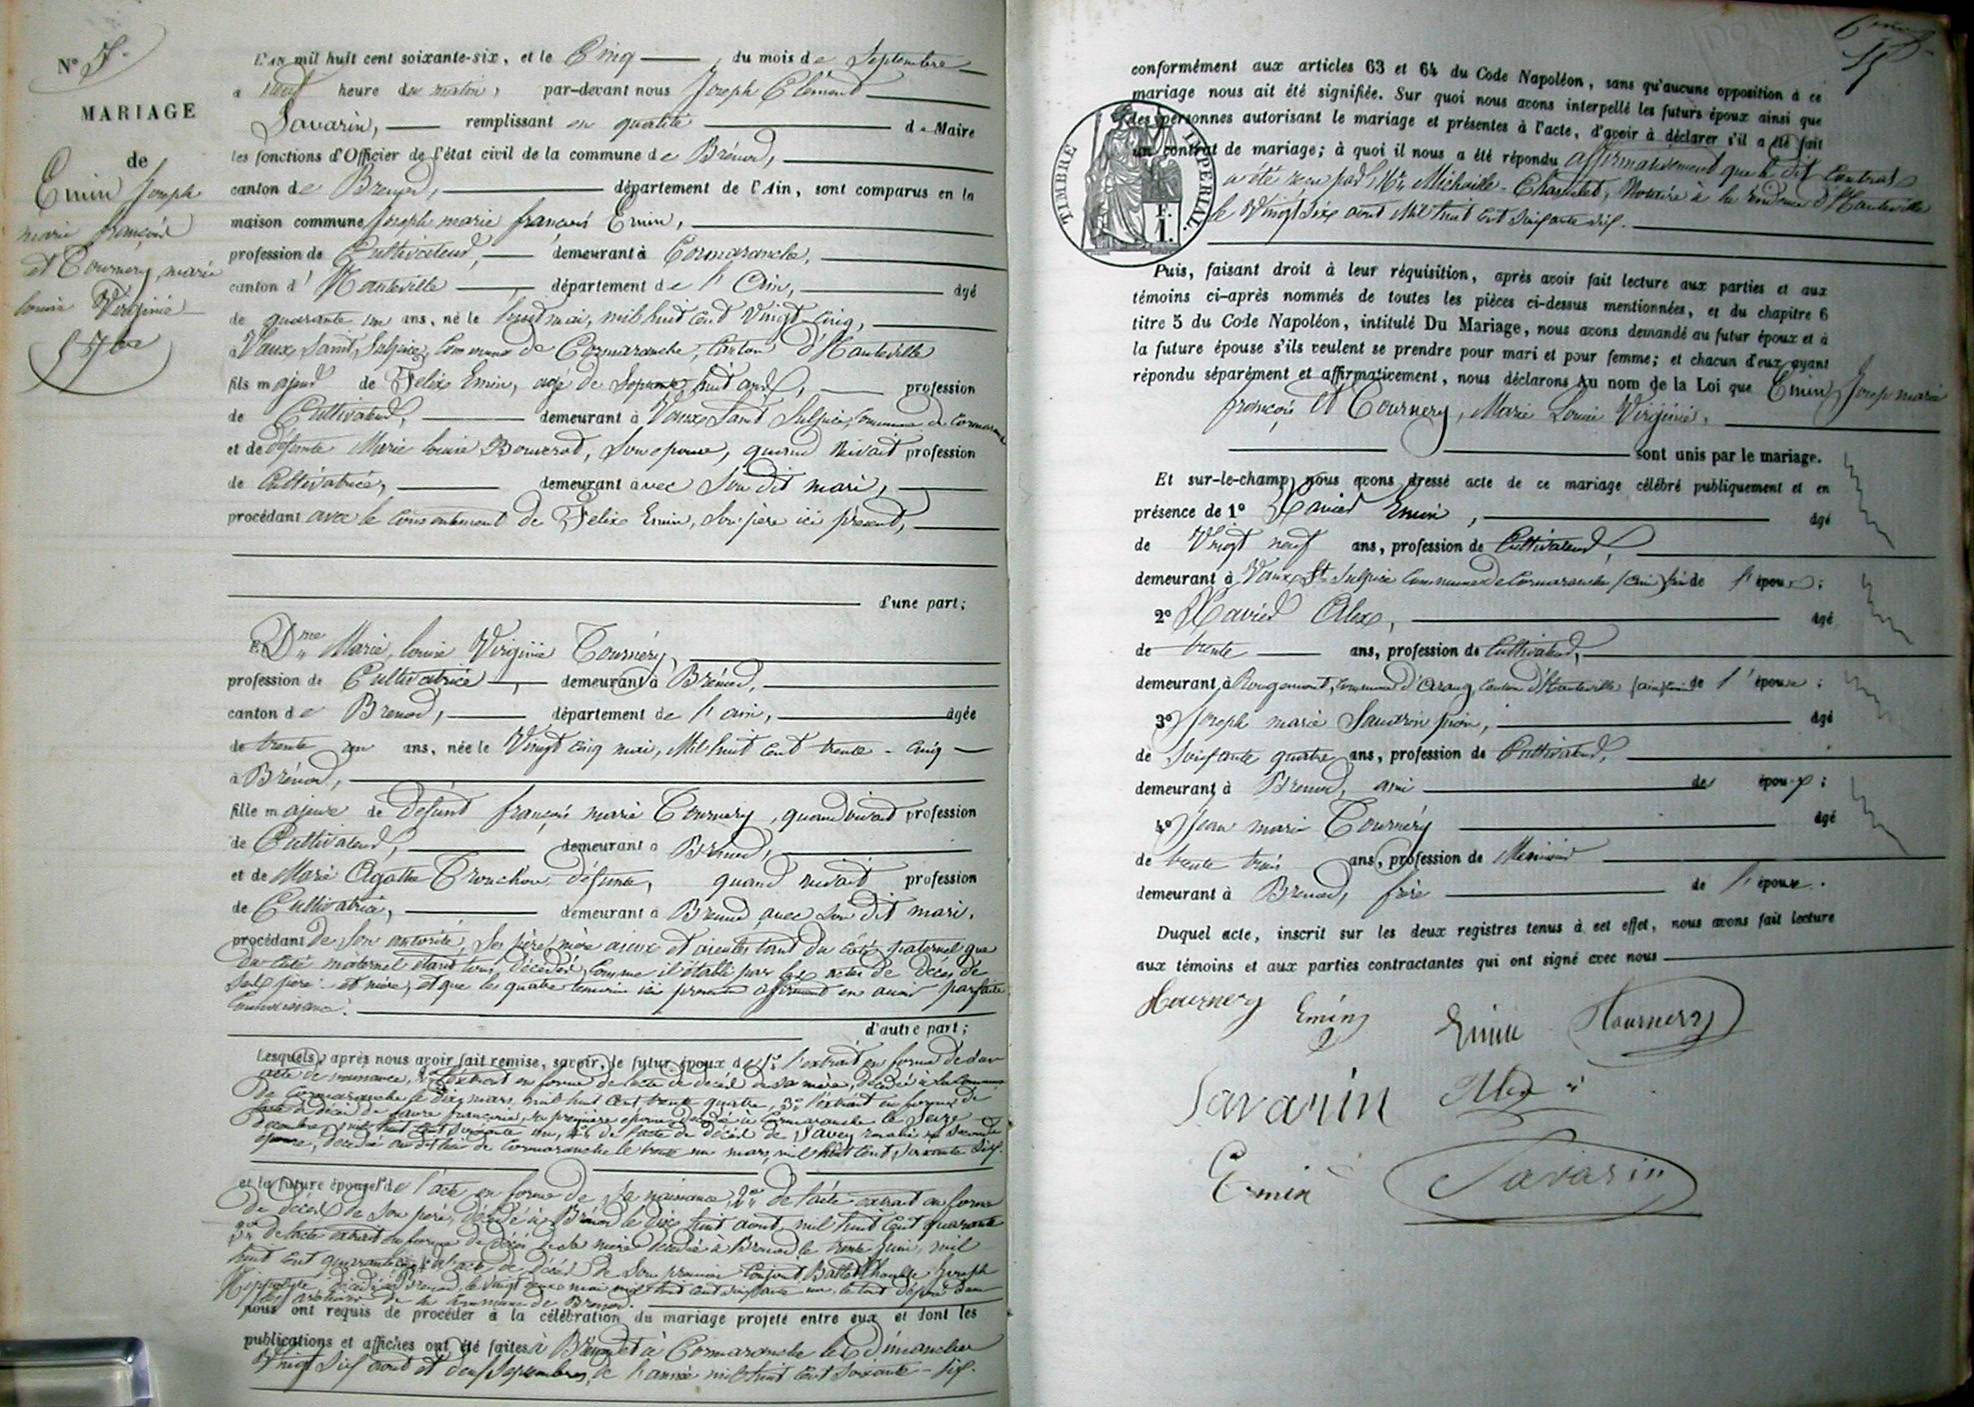 N° 7.
MARIAGE
de
Emin Joseph
marie françois
et Tournery, marie
louise Virginie
5 7bre
L'AN mil huit cent soixante-six, et le Cinq, du mois de Septembre
à neuf heure du matin, par-devant nous Joseph Clément
Savarin, remplissant en qualité de Maire
les fonctions d'Officier de l'état civil de la commune de Brénod,
canton de Brenod, département de l'Ain, sont comparus en la
maison commune Joseph marie françois Emin,
profession de Cultivateur, demeurant à Cormaranche,
canton d'Hauteville, département de l'Ain, âgé
de quarante un ans, né le huit mai, mil huit cent vingt cinq,
à Vaux Saint Sulpice, Commune de Cormaranche, Canton d'Hauteville
fils majeur de Felix Emin, agé de Septante huit ans, profession
de Cultivateur, demeurant à Vaux Saint Sulpice, commune de Cormaranche
et de défunte Marie louise Bouverot, son épouse, quand vivait profession
de Cultivatrice, demeurant avec son dit mari,
procédant avec le consentement de Felix Emin, son père ici présent,
d'une part;
Et Dme Marie, louise Virginie Tournery,
profession de Cultivatrice, demeurant à Brénod,
canton de Brenod, département de l'ain, âgée
de trente un ans, née le vingt cinq mai, Mil huit cent trente-cinq
à Brénod,
fille majeure de Défunt françois marie Tournery, quand vivait profession
de Cultivateur, demeurant à Brénod,
et de Marie Agathe Tronchon défunte, quand vivait profession
de Cultivatrice, demeurant à Brenod avec son dit mari,
procédant de son autorité, ses père, mère aïeux et aieules tant du côté paternel que
du côté maternel étant tous décédés, comme il établi par les actes de décès de
ses père et mère, et que les quatre temoins ici présents affirment en avoir parfaite
connaissance.
d'autre part;
Lesquels, après nous avoir fait remise, savoir, le futur époux de 1° l'extrait en forme de son
acte de naissance, 2° l'extrait en forme de l'acte de décès de sa mère, décédée à la Commune
de Cormaranche le dix mars, mil huit cent trente quatre, 3° l'extrait en forme de
l'acte de décès de favre françoise, sa première épouse décédée à Cormaranche le Seize
décembre mil huit cent soixante un, 4° de l'acte de décès de Savey sa seconde
épouse, décédée au dit lieu de Cormaranche le trente un mars, mil huit cent soixante six.
et la future épouse 1° de l'acte en forme de sa naissance, 2° de l'acte extrait en forme
de décès de son père, décédé à Brénod le dix huit août, mil huit cent quarante
3° de l'acte extrait en forme de décès de sa mère décédée à Brenod le trente juin, mil
huit cent quarante 4° de l'acte de décès de son premier conjoint Joseph
Hyppolyte, décédé à Brenod, le vingt deux mai mil huit cent soixante un, le tout déposé dans
les archives de la commune de Brenod.
nous ont requis de procéder à la célébration du mariage projeté entre eux et dont les
publications et affiches ont été faites à Brénod et à Cormaranche les dimanches
vingt six août et deux septembre, de l'année mil huit cent soixante-six.
conformément aux articles 63 et 64 du Code Napoléon, sans qu'aucune opposition à ce
mariage nous ait été signifiée. Sur quoi nous avons interpellé les futurs époux ainsi que
des personnes autorisant le mariage et présentes à l'acte, d'avoir à déclarer s'il a été fait
un contrat de mariage; à quoi il nous a été répondu affirmativement que le dit Contrat
a été reçu par Me Michaille-Chamelet, Notaire à la résidence d'Hauteville
le vingt six août Mil huit cent soixante six.
TIMBRE IMPÉRIAL.
1 F.
Puis, faisant droit à leur réquisition, après avoir fait lecture aux parties et aux
témoins ci-après nommés de toutes les pièces ci-dessus mentionnées, et du chapitre 6
titre 5 du Code Napoléon, intitulé Du Mariage, nous avons demandé au futur époux et à
la future épouse s'ils veulent se prendre pour mari et pour femme; et chacun d'eux ayant
répondu séparément et affirmativement, nous déclarons Au nom de la Loi que Emin, Josep marie
françois et Tournery, Marie Louise Virginie,
sont unis par le mariage.
Et sur-le-champ nous avons dressé acte de ce mariage célébré publiquement et en
présence de 1° Xavier Emin, âgé
de Vingt neuf ans, profession de Cultivateur,
demeurant à Vaux St Sulpice Commune de Cormaranche (ain) de l'époux;
2° Xavier Alex, âgé
de trente ans, profession de Cultivateur,
demeurant à Rougemont, Commune d'Aranc, Canton d'Hauteville (ain) de l'épouse;
3° Joseph marie Savarin âgé
de soixante quatre ans, profession de Cultivateur,
demeurant à Brenod, ami de époux;
4° Jean marie Tournery âgé
de trente trois ans, profession de Menuisier
demeurant à Brenod, frère de l'épouse.
Duquel acte, inscrit sur les deux registres tenus à cet effet, nous avons fait lecture
aux témoins et aux parties contractantes qui ont signé avec nous
Tournery Emin Emin Tournery
Savarin Alex
Emin Savarin